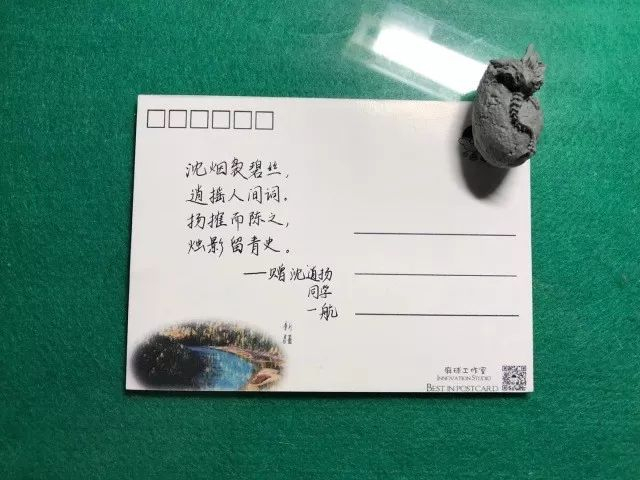 沈烟袅碧丝，
逍摇人间词。
扬摧而陈之，
烛影留青史。
——赠沈逍扬
同学
一航
新疆
麻球工作室
INNOVATION STUDIO
BEST IN POSTCARD